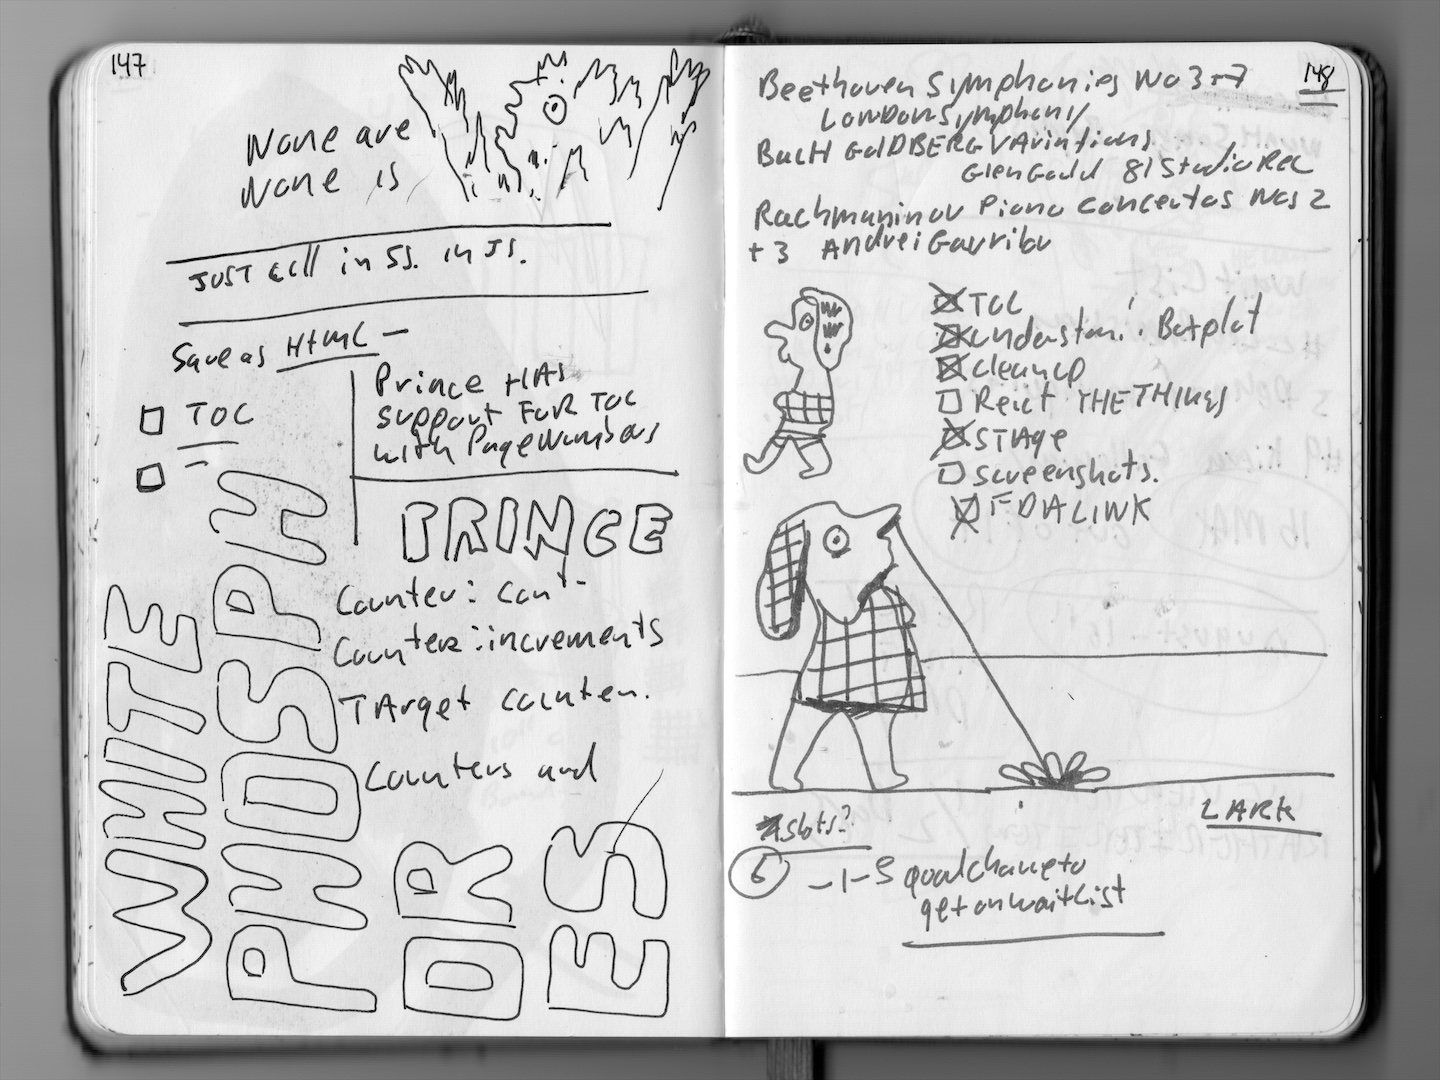 147
None are
None is
JUST call in SS. in JS.
Save as HTML —
TOC
Prince HAS
support FOR TOC
with PageNumbers
PRINCE
Counter: cont-
Counter: increments
TArget counter.
Counters and
WHITE
PHOSPH
OR
ES
148
Beethoven Symphonies No 3 + 7
LONDON Symphony
BacH GolDBERG VAriations
Glen Gould 81 Studio REC
Rachmaninov Piano Concertos Nos 2
+ 3 Andrei Gavrilov
TOC
understan! Botplot
cleanup
THE THINGS
STAge
screenshots.
FDA LINK
slots?
6 – 1-5 good chance to
get on waitlist